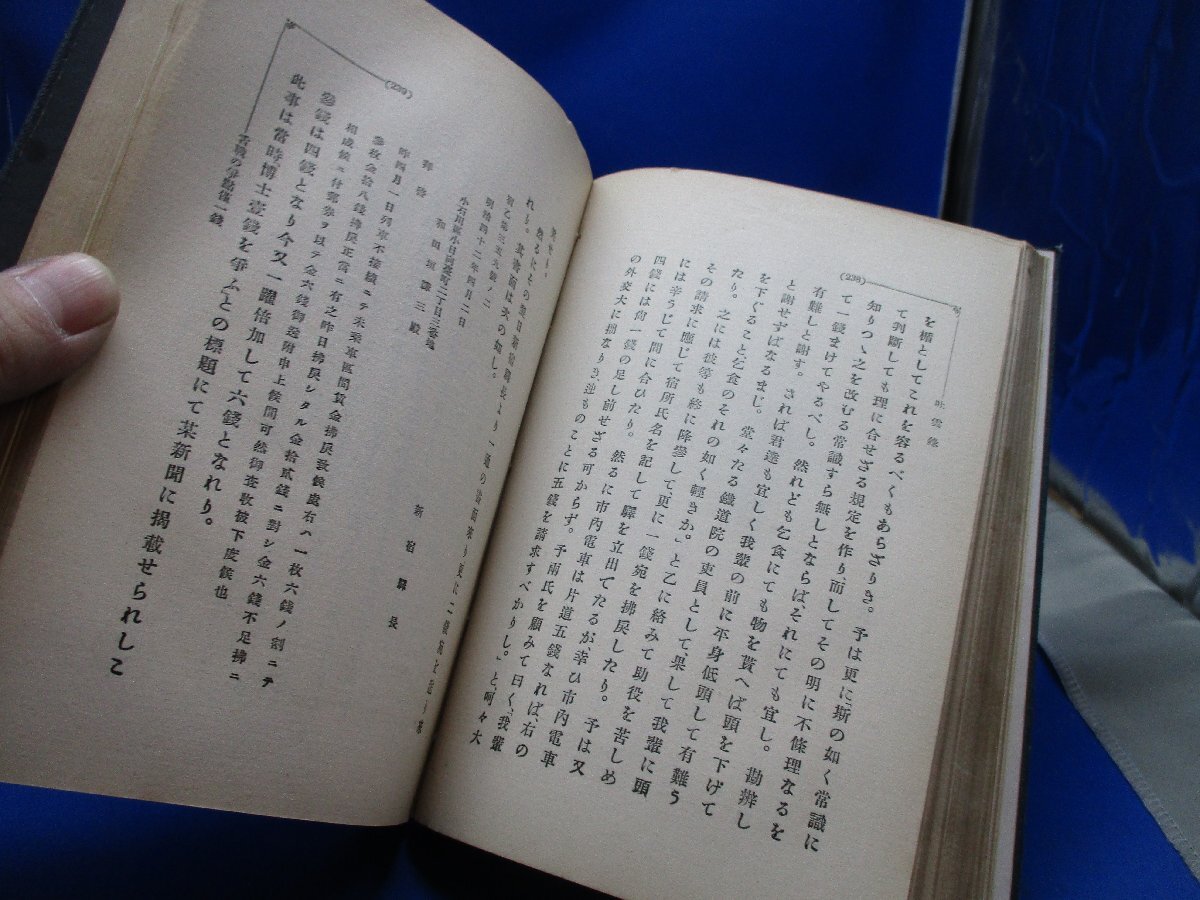 (238)
吐雲錄
を楯としてこれを容るべくもあらざりき。予は更に、斯の如く常識に
て判斷しても理に合せざる規定を作り、而してその明に不條理なるを
知りつゝ之を改むる常識すら無しとならば、それにても宜し。勘辨し
て一錢まけてやるべし。然れども乞食にても物を貰へば頭を下げて
有難しと謝す。されば君達も宜しく我輩の前に平身低頭して有難う
と謝せずばなるまじ。堂々たる鐵道院の吏員として、果して我輩に頭
を下ぐること乞食のそれの如く輕きか。」と乙に絡みて助役を苦しめ
たり。之には彼等も終に降參して、更に一錢宛を拂戾したり。予は又
その請求に應じて宿所氏名を記して驛を立出でたるが、幸ひ市內電車
には辛うじて間に合ひたり。然るに市內電車は片道五錢なれば、右の
四錢には尙一錢の足し前せざる可からず。予兩氏を顧みて曰く、我輩
の外交大に拙なりき、迚ものことに五錢を請求すべかりし。」と、呵々大
(239)
然るにその翌日新宿驛長より一通の書面來り更に二錢宛を送り來
れり。其書面は次の如し。
明治四十二年四月二日
小石川區小日向臺町二丁目三番地
和田垣謙三殿
新宿驛長
拜啓
昨四月一日列車不接續ニテ未乘車區間賃金拂戾致候處右ハ一枚六錢ノ割ニテ
參枚金拾八錢拂戾正當ニ有之昨日拂戾シタル金拾貳錢ニ對シ金六錢不足拂ニ
相成候ニ付爲參ヲ以テ金六錢御送附申上候間可然御査收被下度候也
參錢は四錢となり今又一躍倍加して六錢となれり。
此事は當時、博士壹錢を爭ふとの標題にて某新聞に揭載せられしこ
舌戰の爭點僅一錢